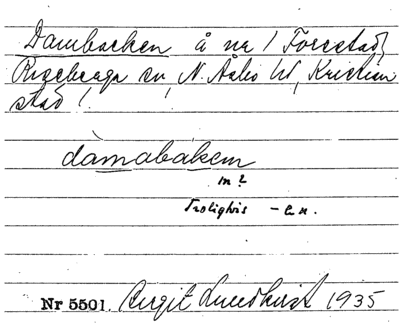 Dambacken å nr 1 Forestad,
Riseberga sn, N. Åsbo hd, Kristian
stad l.
dàmabakem
m?
Troligtvis -en.
Nr 5501. Birgit Lundkvist 1935